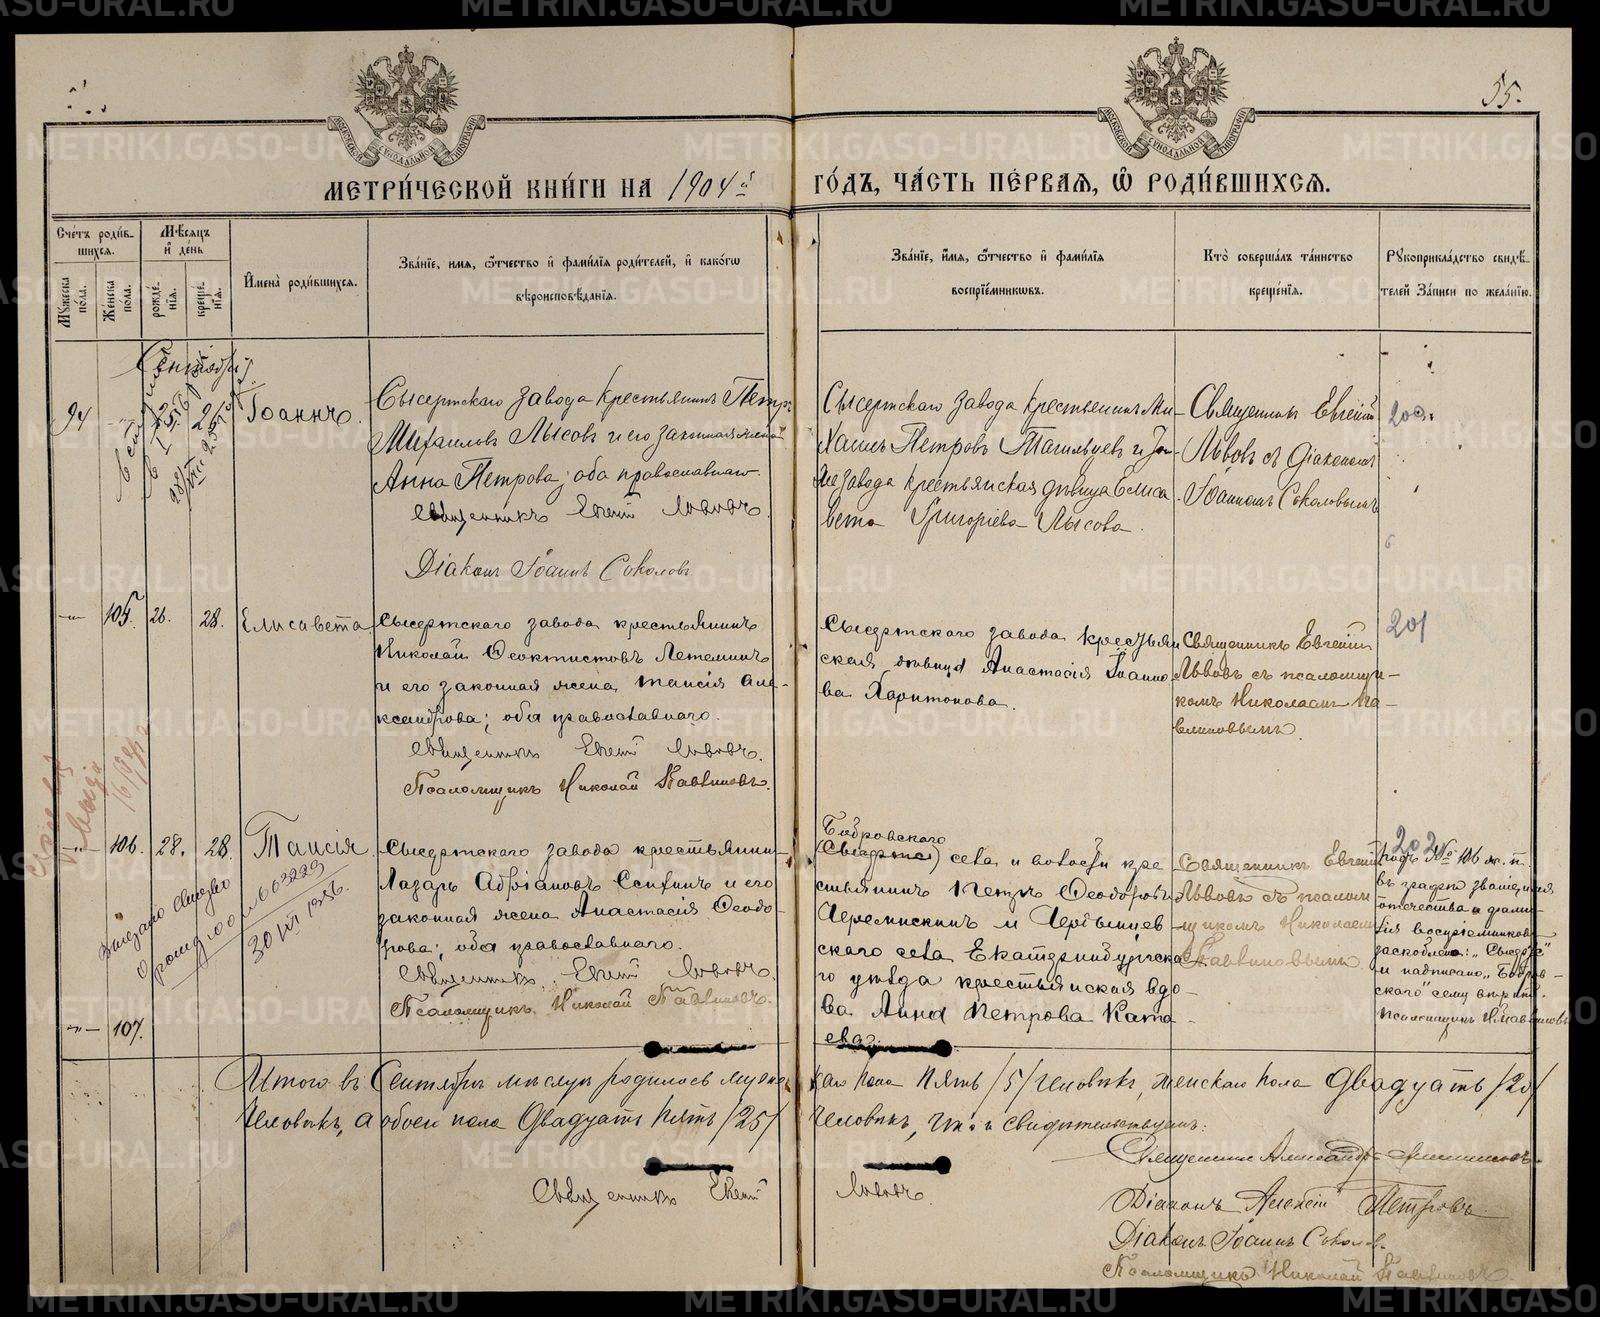 55.
МЕТРИ́ЧЕСКОЙ КНИ́ГИ НА 1904й
ГО́ДЪ, ЧА́СТЬ ПЕ́РВАЯ, Ѡ҆ РОДИ́ВШИХСЯ.
Сче́тъ роди́в-
шихся.
Мꙋжеска по́ла.
Же́нска по́ла.
Мѣ́сяцъ
и҆ де́нь
рожде́нїя.
креще́нїя.
И҆мена̀ роди́вшихся.
Зва́нїе, имя, ѻ҆́тчество и҆ фами́лїя роди́телей, и҆ како́гѡ
вѣроисповѣ́данїя.
Зва́нїе, и҆́мя, ѻ҆́тчество и҆ фами́лїя
воспрїе́мниковъ.
Кто̀ соверша́лъ та́инство
креще́нїя.
Рꙋкоприкла́дство свидѣ́-
телей за́писи по жела́нїю.
Сентябрь
94
25
26
Іоаннъ.
Сысертскаго завода крестьянинъ Петръ
Михаиловъ Лысовъ и его законная жена
Анна Петрова; оба православнаго.
Священникъ Евгеній Львовъ.
Діаконъ Іоаннъ Соколовъ
Сысертскаго завода крестьянинъ Ми-
хаилъ Петровъ и
завода крестьянская дѣвица Елиса
вета Григорьева Лысова.
Священникъ Евгеній
Львовъ съ діакономъ
Іоанномъ Соколовымъ
200
105.
26.
28.
Елисавета
Сысертскаго завода крестьянинъ
Николай Ѳеоктистовъ Летеминъ
и его законная жена Таисія Але-
ксандрова; оба православнаго.
Священникъ Евгеній Львовъ.
Псаломщикъ Николай Павлиновъ.
Сысертскаго завода крестьян
ская дѣвица Анастасія Іоанно
ва Харитонова.
Священникъ Евгеній
Львовъ съ псаломщи-
комъ Николаемъ Па-
влиновымъ.
201
106.
28.
28.
Таисія
Сысертскаго завода крестьянинъ
Лазарь Адріановъ и его
законная жена Анастасія Ѳеодо-
рова; оба православнаго.
Священникъ Евгеній Львовъ.
Псаломщикъ Николай Павлиновъ.
Бобровскаго
села и волости кре
стьянинъ Петръ Ѳеодоровъ
Черемискинъ и
скаго села Екатеринбургска
го уѣзда крестьянская вдо-
ва Анна Петрова Ката
ева.
Священникъ Евгеній
Львовъ съ псалом
щикомъ Николаемъ
Павлиновымъ
202
№ 106 ж. п.
въ графѣ званіе, имя
отчество и фами-
лія воспріемниковъ
заскоблено: „Сысертс"
и надписано „Бобров-
скаго" сему вѣрить.
Псаломщикъ Н. Павлиновъ
30/VII 1956.
107.
Итого въ Сентябрѣ мѣсяцѣ родилось мужес
каго пола пять /5/ человѣкъ, женскаго пола двадцать /20/
человѣкъ, а обоего пола двадцать пять /25/
человѣкъ, что и свидѣтельствуемъ:
Священникъ Александръ
Священникъ Евгеній Львовъ.
Діаконъ Алексѣй Петровъ
Діаконъ Іоаннъ Соколовъ.
Псаломщикъ Николай Павлиновъ.
METRIKI.GASO-URAL.RU